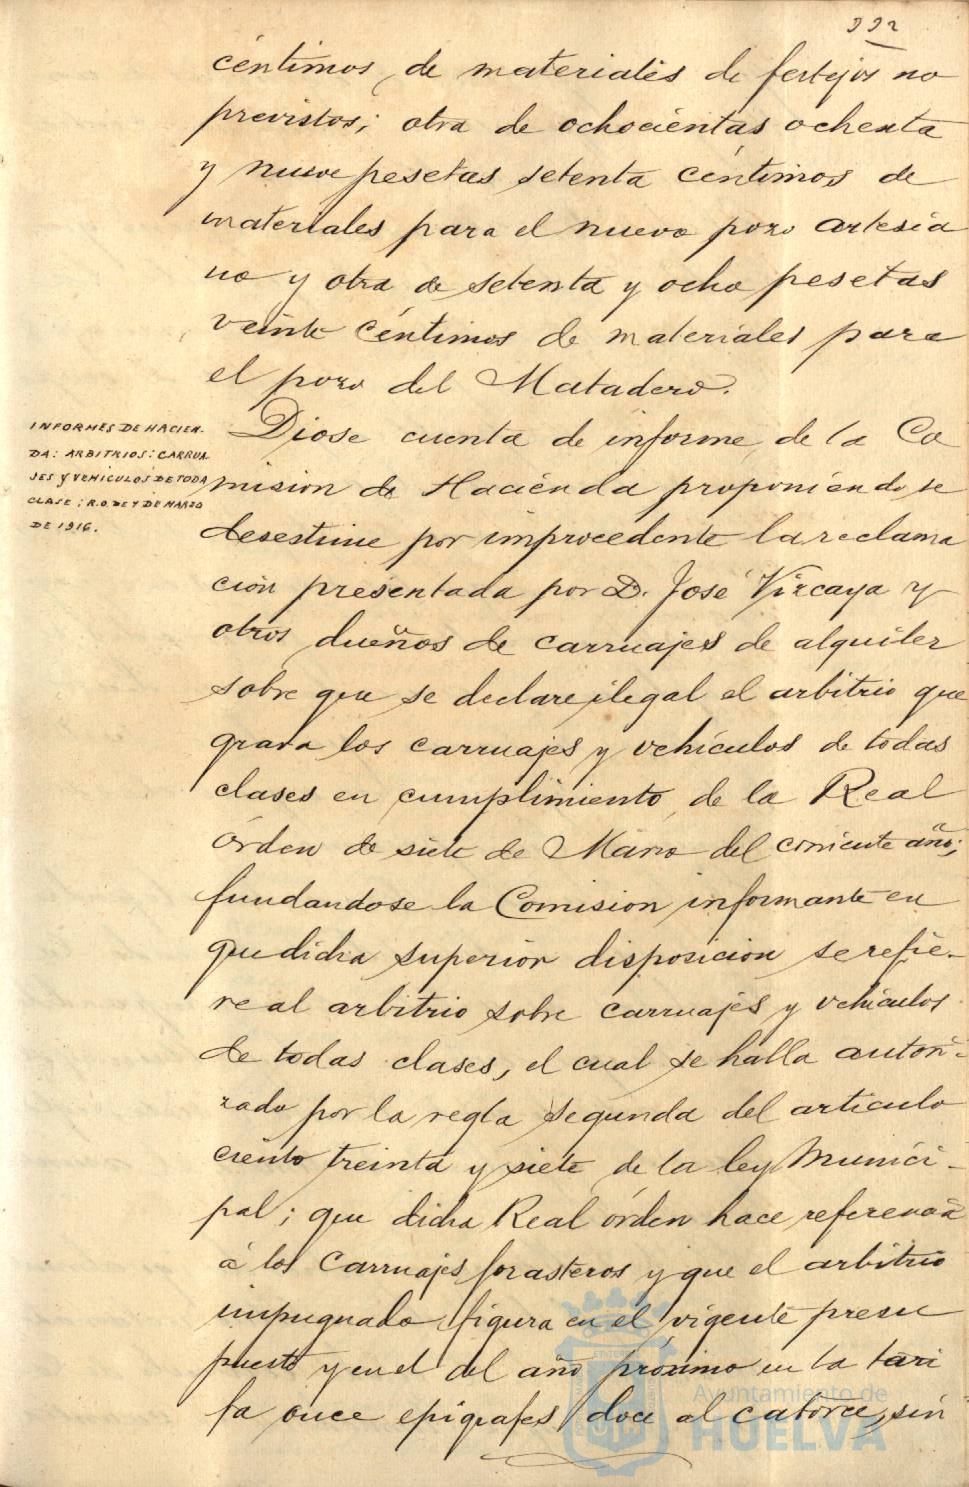 992
céntimos, de materiales de festejos no
previstos; otra de ochocientas ochenta
y nueve pesetas setenta céntimos de
materiales para el nuevo pozo artesia
no y otra de setenta y ocho pesetas
veinte céntimos de materiales para
el pozo del Matadero.
INFORMES DE HACIEN-
DA: ARBITRIOS: CARRUA-
JES Y VEHÍCULOS DE TODA
CLASE: R.O. DE 7 DE MARZO
DE 1916.
Diose cuenta de informe de la Co
misión de Hacienda proponiendo se
desestime por improcedente la reclama
ción presentada por D. José Vizcaya y
otros dueños de carruajes de alquiler
sobre que se declare ilegal el arbitrio que
grava los carruajes y vehículos de todas
clases en cumplimiento de la Real
órden de siete de Marzo del corriente año;
fundandose la Comisión informante en
que dicha superior disposición se refie-
re al arbitrio sobre carruajes y vehículos
de todas clases, el cual se halla autori-
zado por la regla segunda del artículo
ciento treinta y siete de la ley Munici-
pal; que dicha Real órden hace referencia
á los carruajes forasteros y que el arbitrio
impugnado figura en el vigente presu
puesto y en el del año próximo en la tari
fa once epígrafes doce al catorce, sin
Ayuntamiento de
HUELVA